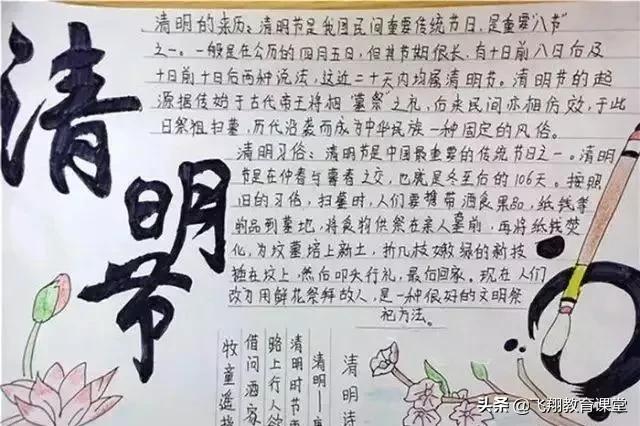 清明节
清明的来历：清明节是我国民间重要传统节日，是重要"八节"
之一。一般是在公历的四月五日，但其节期很长，有十日前八日后及
十日前十日后两种说法，这近二十天内均属清明节。清明节的起
源据传始于古代帝王将相"墓祭"之礼，后来民间亦相仿效，于此
日祭祖扫墓，历代沿袭而成为中华民族一种固定的风俗。
清明习俗：清明节是中国最重要的传统节日之一。清明
节是在仲春与暮春之交，也就是冬至后的106天。按照
旧的习俗，扫墓时，人们要携带酒食果品，纸钱等
物品到墓地，将食物供祭在亲人墓前，再将纸钱焚
化，为坟墓培上新土，折几枝嫩绿的新枝
插在坟上，然后叩头行礼，最后回家。现在人们
改为用鲜花祭拜故人，是一种很好的文明祭
祀方法。
清明诗
清明——唐
清明时节雨
路上行人欲
借问酒家
牧童遥指
头条 @飞翔教育课堂